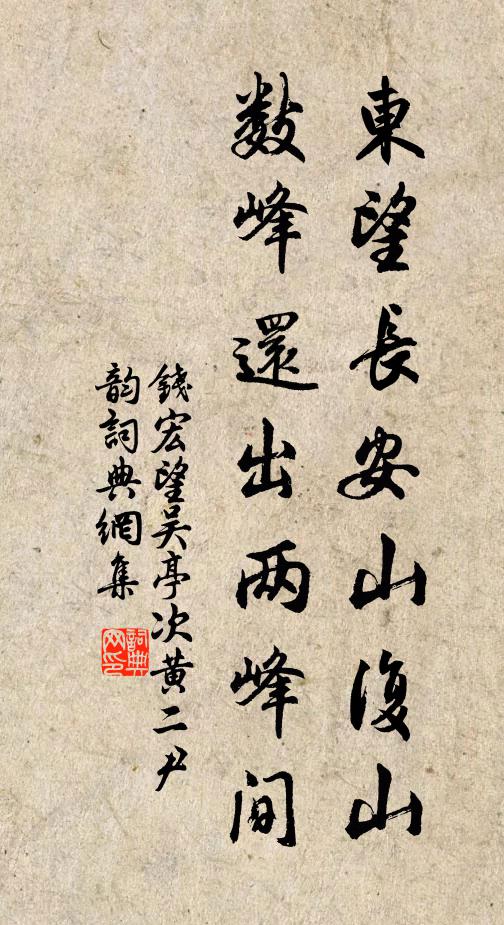 東望長安山復山
数峰還出两峰間
錢宏望吴亭次黄二尹
韵詞典網集
詞典
网印